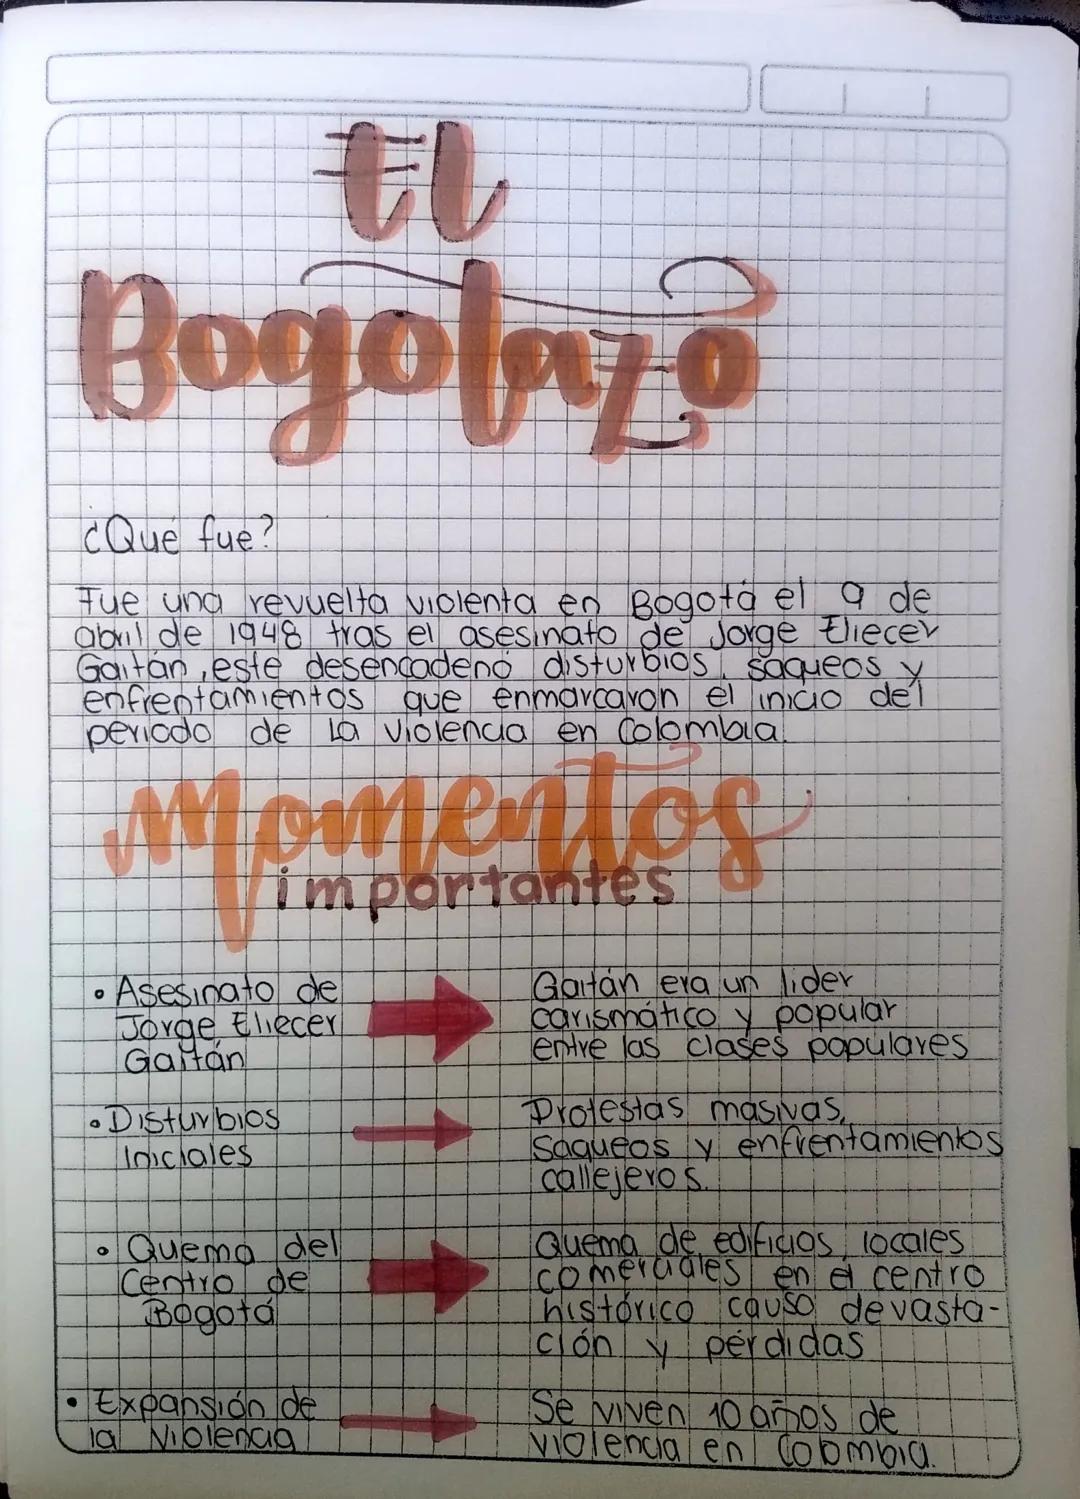 El
Bogotazo
¿Qué fue?
Fue una revuelta violenta en Bogotá el 9 de
abril de 1948 tras el asesinato de Jorge Eliecer
Gaitán, este desencadenó disturbios, saqueos y
enfrentamientos que enmarcaron el inicio del
periodo de La violencia en Colombia.
Momentos
importantes
• Asesinato de
Jorge Eliecer
Gaitán
Gaitán era un lider
carismático y popular
entre las clases populares
• Disturbios
Iniciales
Protestas masivas,
Saqueos y enfrentamientos
callejeros.
• Quema del
Centro de
Bogotá
Quema de edificios, locales
comerciales en el centro
histórico causó devasta-
ción y pérdidas
• Expansión de
la Violencia
Se viven 10 años de
violencia en Colombia.